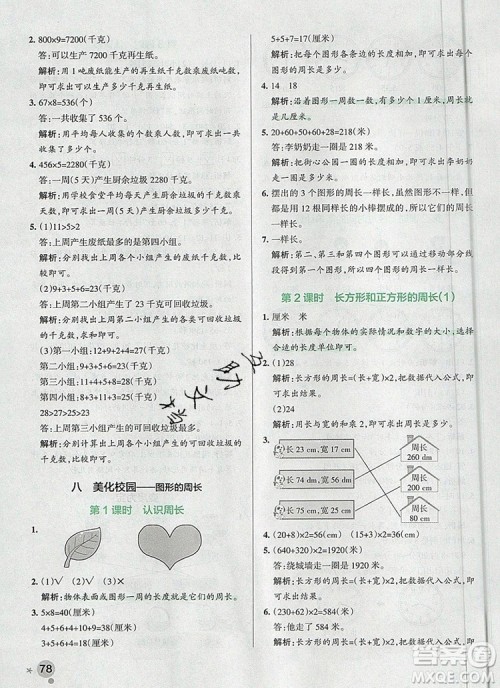 2. 800×9=7200(千克)
答:可以生产 7200 千克再生纸。
解析:用 1 吨废纸能生产的再生纸千克数乘吨数,即可求出可以生产多少千克再生纸。
3. 67×8=536(个)
答:一共收集了 536 个。
解析:用平均每人收集的个数乘人数,即可求出一共收集的个数。
4. 456×5=2280(千克)
答:一周(5 天)产生厨余垃圾 2280 千克。
解析:用学校食堂平均每天产生厨余垃圾的千克数乘天数,即可求出一周(5 天)产生厨余垃圾的千克数。
5. (1)11>5>2
答:上周产生废纸最多的是第二小组。
解析:比较上周各个小组产生废纸的千克数,即可解答。
(2)9+3+11=23(千克)
答:上周第二小组产生了 23 千克可回收垃圾。
解析:分别求出上周第二小组产生可回收垃圾的千克数,即可解答。
(3)第一小组:12+4+5=21(千克)
第二小组:9+3+11=23(千克)
第三小组:18+8+2=28(千克)
第四小组:8+13+6=27(千克)
28>27>23>21
答:上周第三小组产生的可回收垃圾最多。
解析:分别求出各个小组产生可回收垃圾的千克数,再比较即可。
八 美化校园——图形的周长
第 1 课时 认识周长
1.
2. (1)√ (2)× (3)√
解析:物体表面或图形一周的长度就是它们的周长。
3. 5×8=40(厘米)
4+5+6+7=22(厘米)
4+3+6+4=17(厘米)
78
5+5+7=17(厘米)
解析:把每个图形各条边的长度相加,就是每个图形的周长。
4. 14 18
解析:沿着图形一周数一数,有多少个 1 厘米,即可求出周长是多少厘米。
5. 20+60+50+60+28=218(米)
答:李奶奶走一圈是 218 米。
解析:把街心公园一圈各条边的长度相加,即可求出走一圈的长度。
6. 摆出的 3 个图形的周长一样长。因为这三个图形都是由 12 根一样长的小棒摆成的,所以它们的周长一样长。
7. 一样长。
解析:第二、第三和第四个图形的周长与第一个图形的周长一样长。
第 2 课时 长方形和正方形的周长(1)
1. 厘米 米
解析:根据生活经验、物体的实际情况和数据的大小,选择合适的长度单位。
2. (1)28
解析:长方形的周长=(长+宽)×2,把数据代入公式,即可求出长方形的周长。
(2)24
解析:用周长与长、宽的关系求解。
3.
长 23 cm,宽 17 cm
长 34 dm,宽 96 dm
长 90 cm,宽 90 cm
周长
260 dm
周长
360 cm
周长
80 cm
4. (20+8)×2=56(厘米)
5. (640+320)×2=1920(米)
答:绕城墙走一圈是 1920 米。
解析:长方形的周长=(长+宽)×2,把数据代入公式,即可求出周长。
6. (230+62)×2=584(米)
答:他走了 584 米。
解析:长方形的周长=(长+宽)×2,把数据代入公式,即可求出周长。
答案圈
MXQE.COM